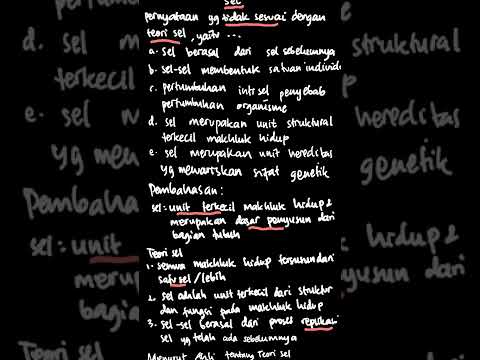 sel
pernyataan yg tidak sesuai dengan
teori sel, yaitu ...
a. sel berasal dari sel sebelumnya
b. sel-sel membentuk satuan individu
c. pertumbuhan inti sel penyebab
pertumbuhan organisme
d. sel merupakan unit struktural
terkecil makhluk hidup
e. sel merupakan unit hereditas
yg mewariskan sifat genetik
Pembahasan:
sel: unit terkecil makhluk hidup &
merupakan dasar penyusun dari
bagian tubuh
Teori sel
1. semua makhluk hidup tersusun dari
satu sel/lebih
2. sel adalah unit terkecil dari struktur
dan fungsi pada makhluk hidup
3. sel-sel berasal dari proses replikasi
sel yg telah ada sebelumnya
Menurut Ahli tentang Teori sel